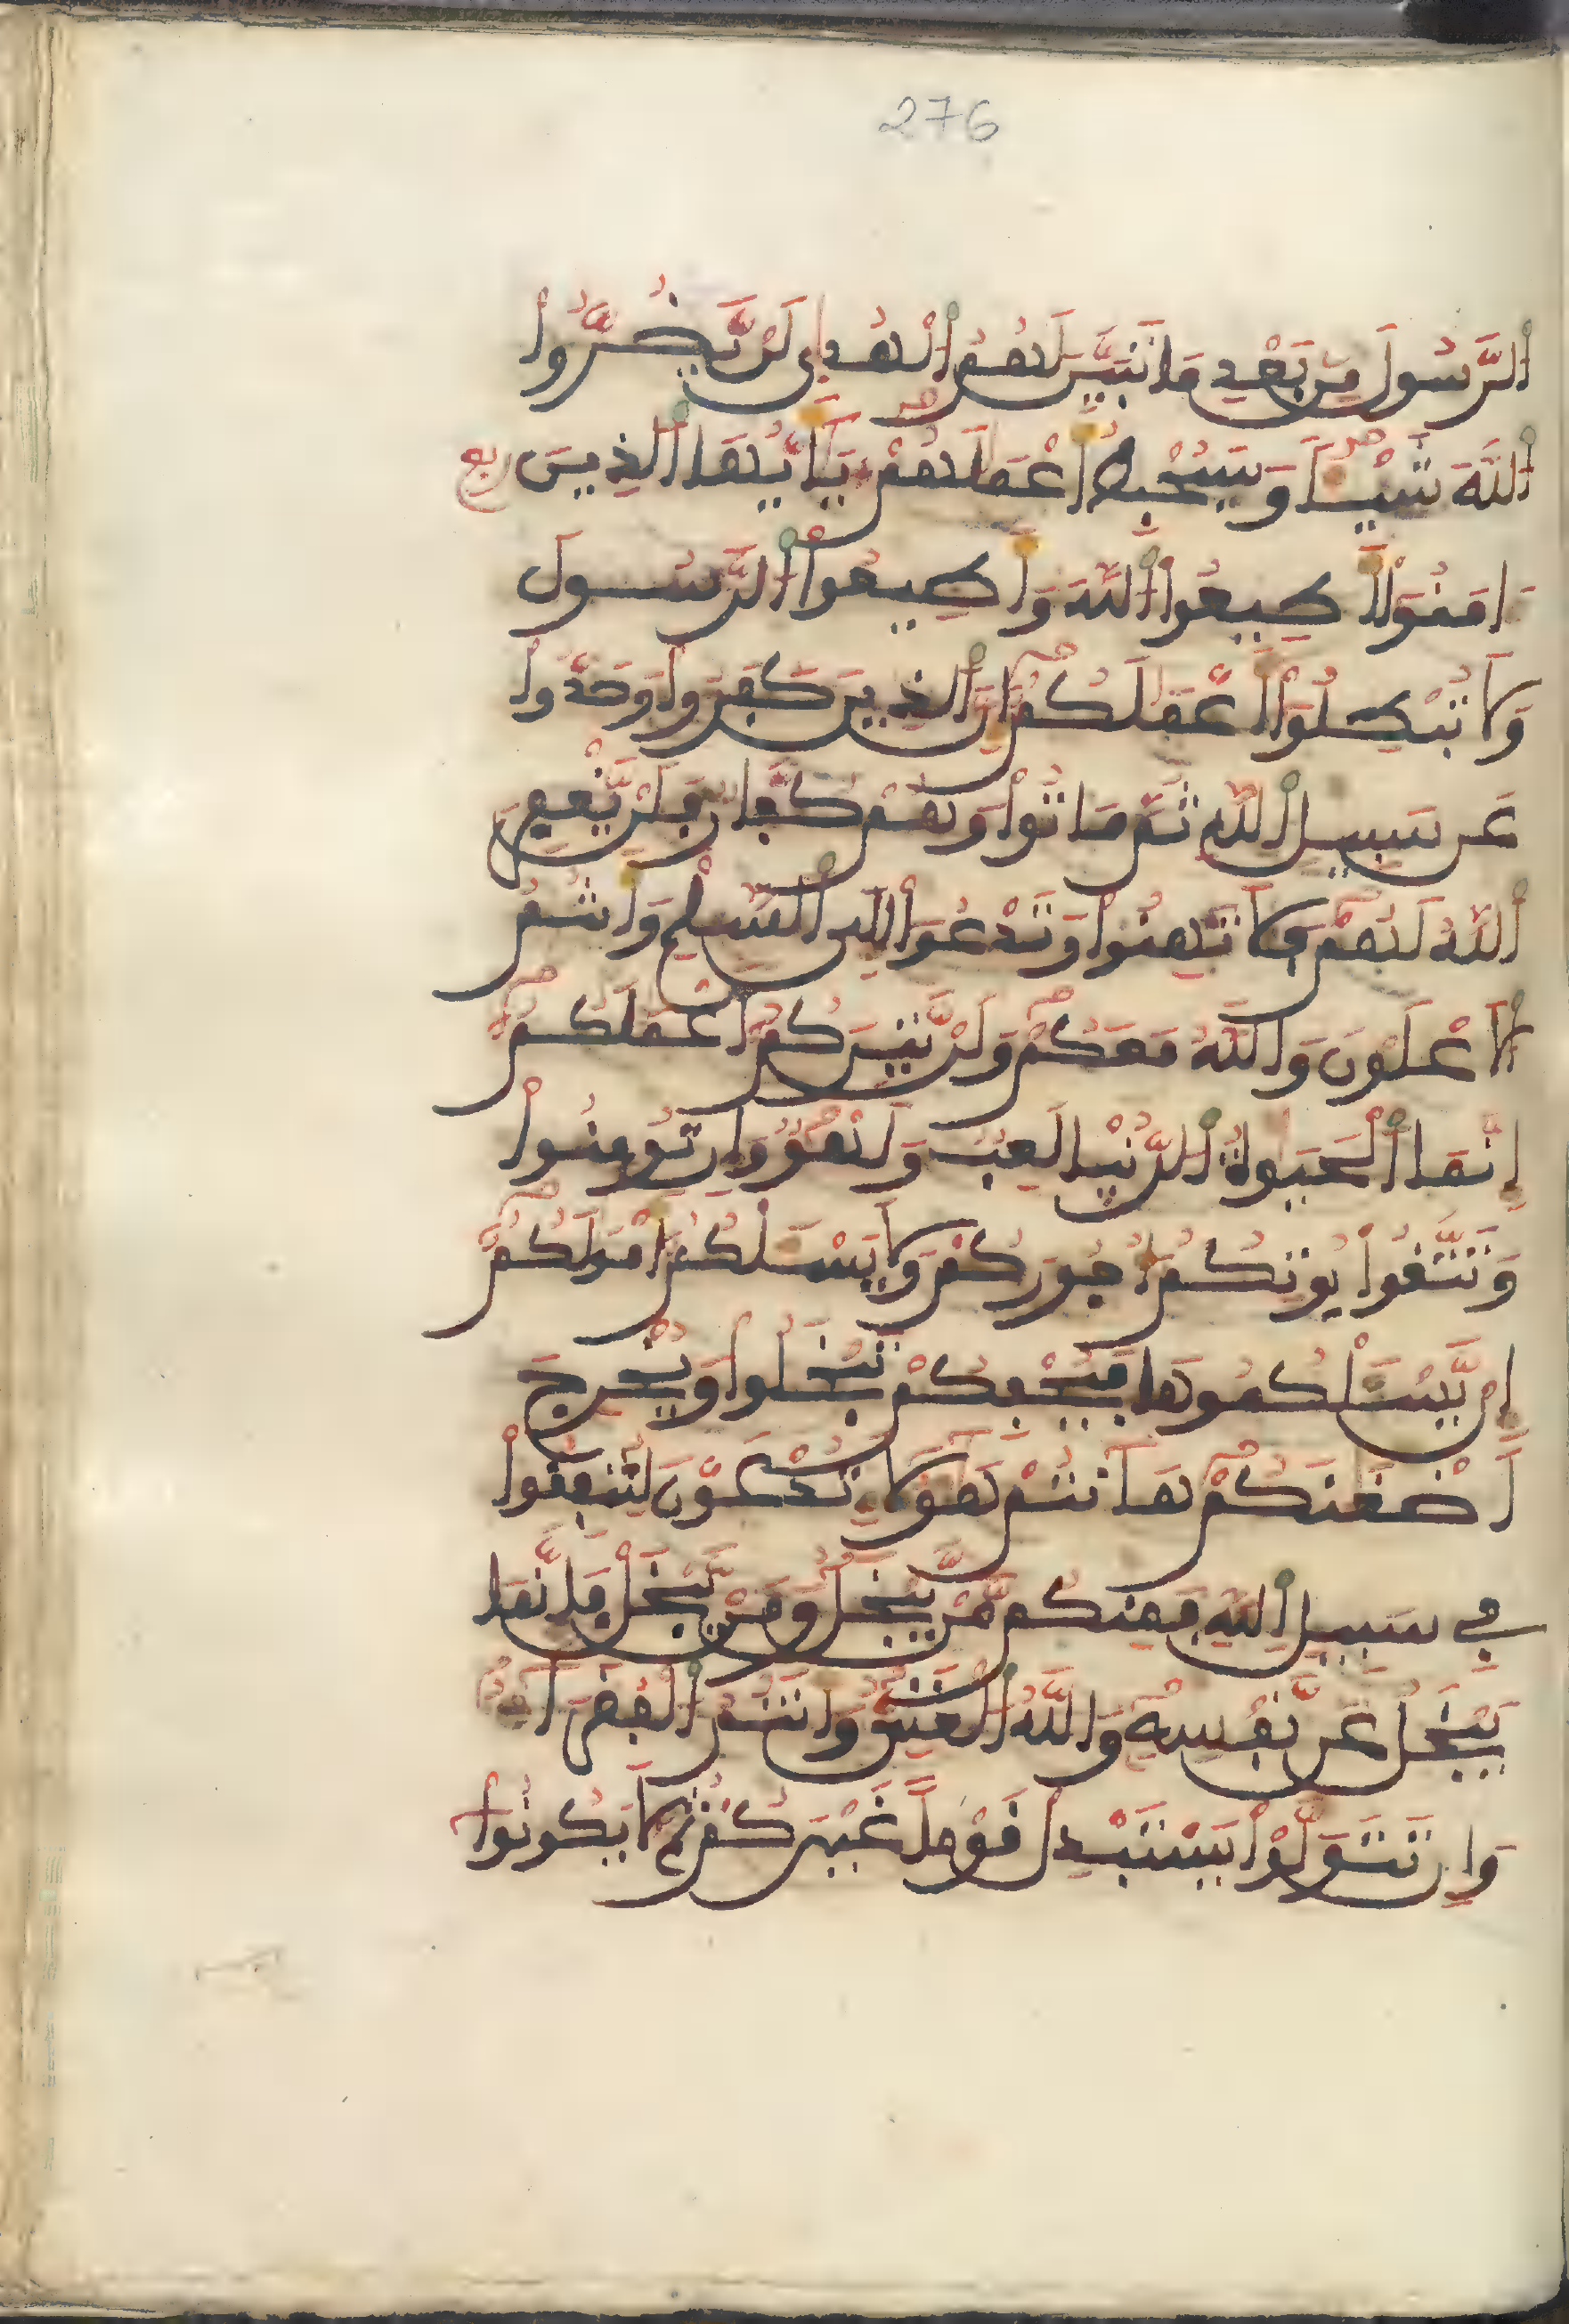 276
اَ۬لرَّسُولَ مِنۢ بَعْدِ مَا تَبَيَّنَ لَهُمُ اُ۬لْهُد۪ىٰ لَنْ يَّضُرُّوا۟
اُ۬للَّهَ شَيْـٔاً وَسَيُحْبِطُ أَعْمَٰلَهُمْ يَٰٓأَيُّهَا اَ۬لذِينَ ربع
ءَامَنُوٓا۟ أَطِيعُوا۟ اُ۬للَّهَ وَأَطِيعُوا۟ اُ۬لرَّسُولَ
وَلَا تُبْطِلُوٓا۟ أَعْمَٰلَكُمُۥٓ إِنَّ اَ۬لذِينَ كَفَرُوا۟ وَصَدُّوا۟
عَن سَبِيلِ اِ۬للَّهِ ثُمَّ مَاتُوا۟ وَهُمْ كُفَّارٌ فَلَنْ يَّغْفِرَ
اَ۬للَّهُ لَهُمْ فَلَا تَهِنُوا۟ وَتَدْعُوٓا۟ إِلَى اَ۬لسَّلْمِ وَأَنتُمُ
اُ۬لَاعْلَوْنَ وَاللَّهُ مَعَكُمْ وَلَنْ يَّتِرَكُمُۥٓ أَعْمَٰلَكُمُۥٓ
إِنَّمَا اَ۬لْحَيَوٰةُ اُ۬لدُّنْيَا لَعِبٌ وَلَهْوٌ وَإِن تُومِنُوا۟
وَتَتَّقُوا۟ يُوتِكُمُۥٓ أُجُورَكُمْ وَلَا يَسْـَٔلْكُمُۥٓ أَمْوَٰلَكُمُۥٓ
إِنْ يَّسْـَٔلْكُمُوهَا فَيُحْفِكُمْ تَبْخَلُوا۟ وَيُخْرِجَ
اَضْغَٰنَكُمْ هَٰٓانتُمْ هَٰٓؤُلَآءِ تُدْعَوْنَ لِتُنفِقُوا۟
فِي سَبِيلِ اِ۬للَّهِ فَمِنكُم مَّنْ يَّبْخَلُ وَمَنْ يَّبْخَلْ فَإِنَّمَا
يَبْخَلُ عَن نَّفْسِهِۦ وَاللَّهُ اُ۬لْغَنِيُّ وَأَنتُمُ اُ۬لْفُقَرَآءُ
وَإِن تَتَوَلَّوْا۟ يَسْتَبْدِلْ قَوْماً غَيْرَكُمْ ثُمَّ لَا يَكُونُوٓا۟